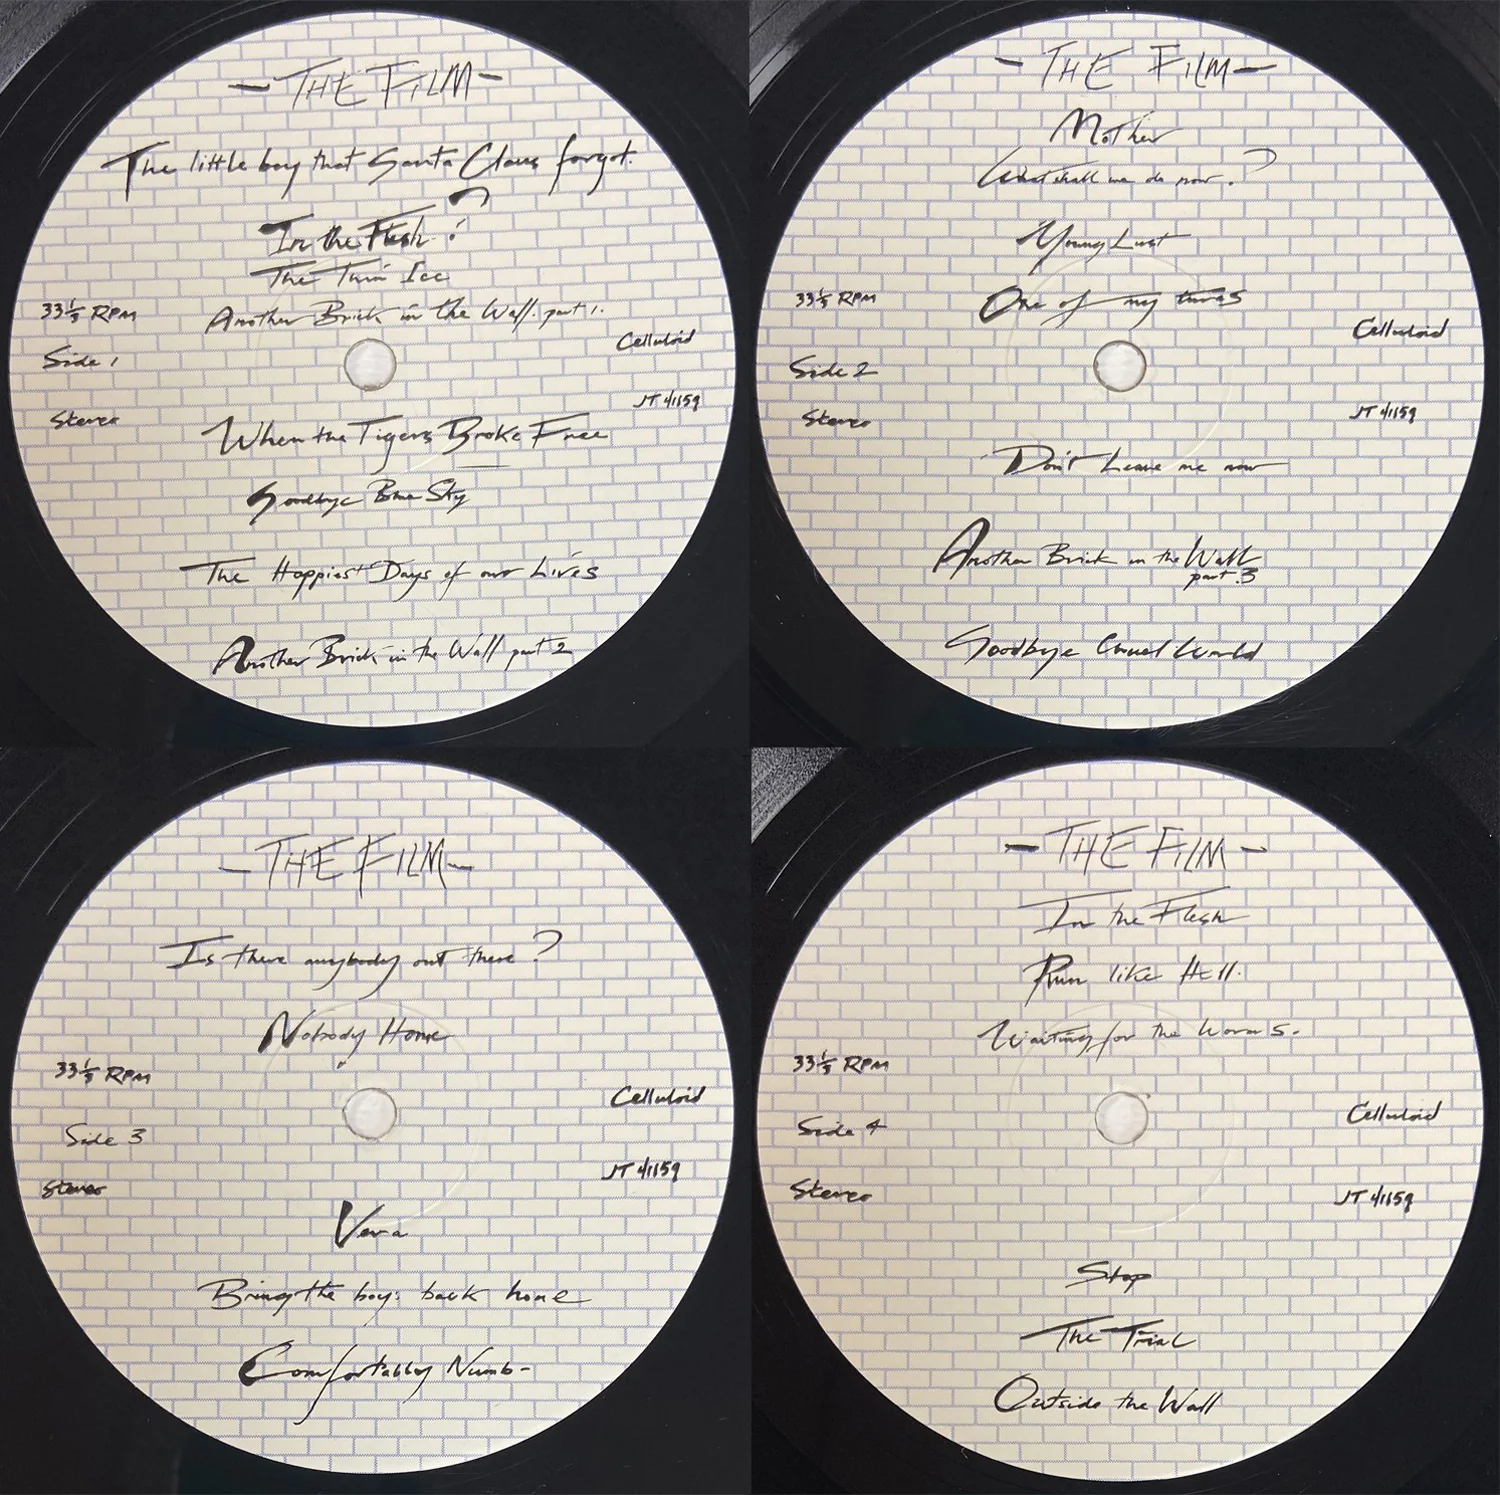 - THE FILM -
The little boy that Santa Claus forgot.
In the Flesh ?
The Thin Ice
Another Brick in the Wall. part 1.
33 1/3 RPM
Celluloid
Side 1
JT 41159
Stereo
When the Tigers Broke Free
Goodbye Blue Sky
The Happiest Days of our Lives
Another Brick in the Wall part 2
- THE FILM -
Mother
What shall we do now. ?
Young Lust
33 1/3 RPM
One of my turns
Celluloid
Side 2
JT 41159
Stereo
Don't Leave me now
Another Brick in the Wall
part.3
Goodbye Cruel World
- THE FILM -
Is there anybody out there ?
Nobody Home
33 1/3 RPM
Celluloid
Side 3
JT 41159
Stereo
Vera
Bring the boys back home
Comfortably Numb-
- THE FILM -
In the Flesh
Run like Hell.
Waiting for the Worms.
33 1/3 RPM
Celluloid
Side 4
JT 41159
Stereo
Stop
The Trial
Outside the Wall